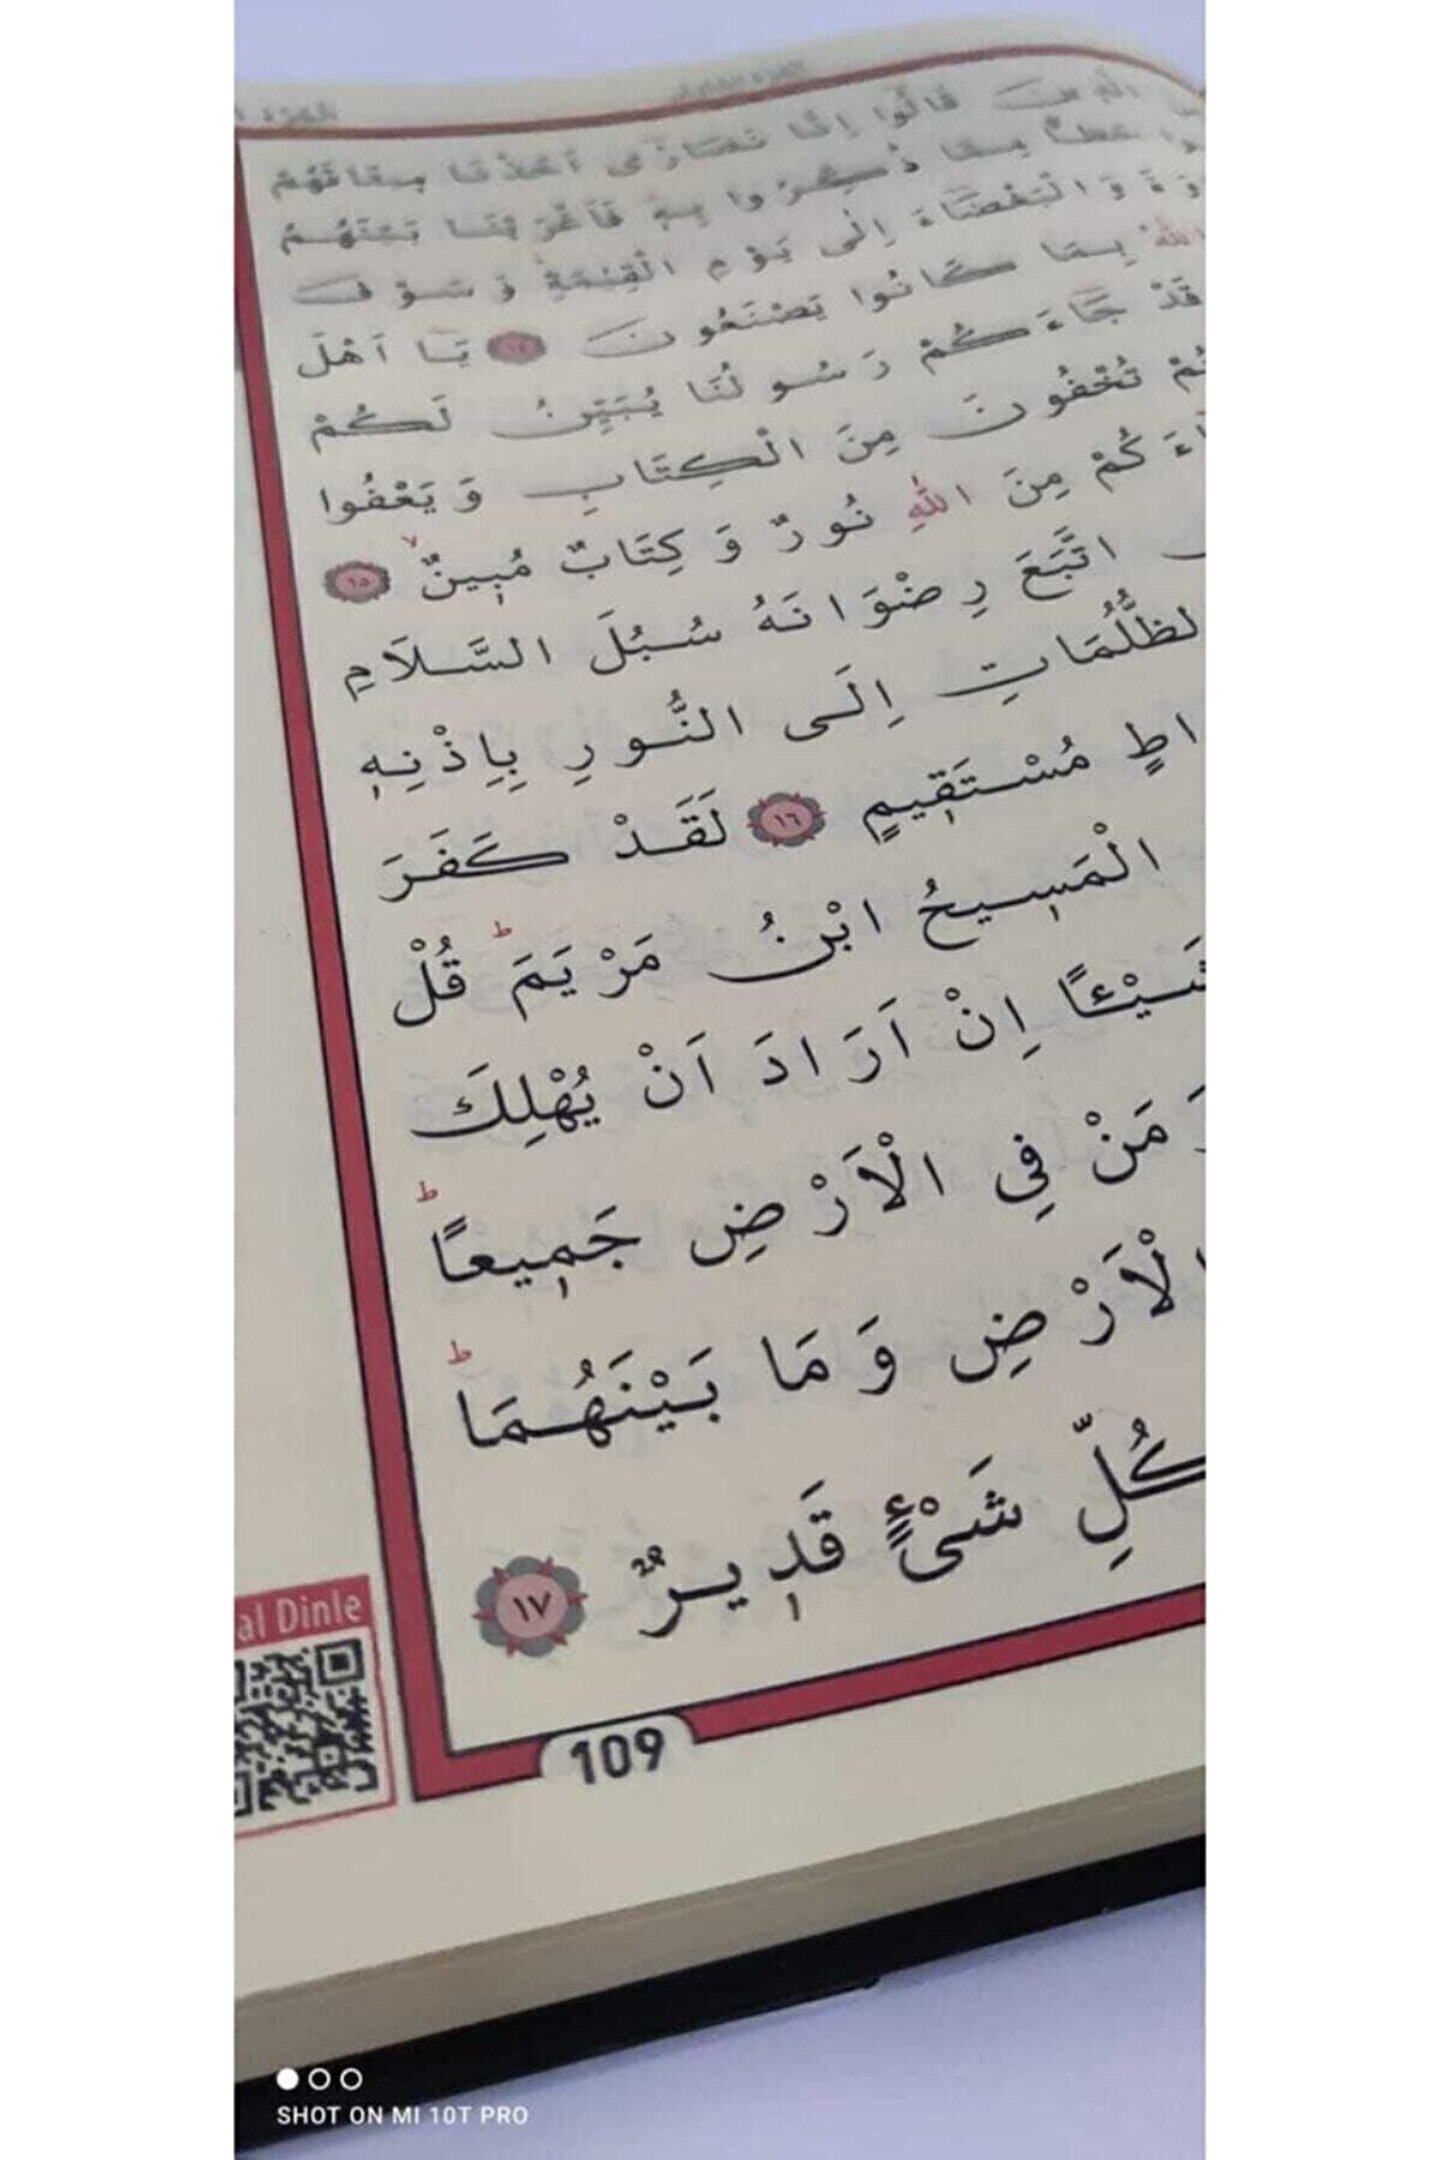 قَالُوا اِنَّا نَصَارٰى اَخَذْنَا مِيثَاقَهُمْ
حَظًّا مِمَّا ذُكِّرُوا بِهِ فَاَغْرَيْنَا بَيْنَهُمُ
وَالْبَغْضَاءَ اِلٰى يَوْمِ الْقِيٰمَةِ وَسَوْفَ
اللّٰهُ بِمَا كَانُوا يَصْنَعُونَ ١٤ يَا اَهْلَ
قَدْ جَاءَكُمْ رَسُولُنَا يُبَيِّنُ لَكُمْ
تُخْفُونَ مِنَ الْكِتَابِ وَيَعْفُوا
اءَكُمْ مِنَ اللّٰهِ نُورٌ وَكِتَابٌ مُبٖينٌۙ ١٥
اتَّبَعَ رِضْوَانَهُ سُبُلَ السَّلَامِ
لظُّلُمَاتِ اِلَى النُّورِ بِاِذْنِهٖ
اطٍ مُسْتَقٖيمٍ ١٦ لَقَدْ كَفَرَ
الْمَسٖيحُ ابْنُ مَرْيَمَؕ قُلْ
شَيْـًٔا اِنْ اَرَادَ اَنْ يُهْلِكَ
مَنْ فِى الْاَرْضِ جَمٖيعًاؕ
الْاَرْضِ وَمَا بَيْنَهُمَاؕ
كُلِّ شَىْءٍ قَدٖيرٌ ١٧
al Dinle
109
SHOT ON MI 10T PRO